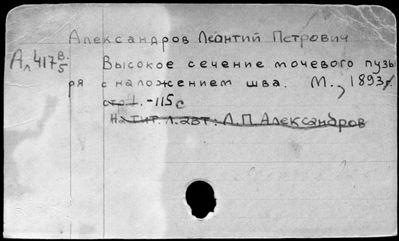 Александров Леонтий Петрович
Ал 417 В./5 Высокое сечение мочевого пузы
ря с наложением шва. М., 1893г.
-115с
На тит. л. авт: Л.П. Александров